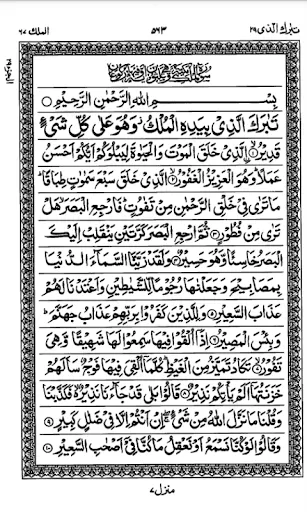 تبٰرك الذی ۲۹ ۵۶۳ الملك ۶۷
بِسْمِ اللهِ الرَّحْمٰنِ الرَّحِيْمِ
تَبٰرَكَ الَّذِيْ بِيَدِهِ الْمُلْكُ وَهُوَ عَلٰى كُلِّ شَيْءٍ
قَدِيْرُۨ ۝۱ الَّذِيْ خَلَقَ الْمَوْتَ وَالْحَيٰوةَ لِيَبْلُوَكُمْ اَيُّكُمْ اَحْسَنُ
عَمَلًا ؕ وَهُوَ الْعَزِيْزُ الْغَفُوْرُ ۝۲ الَّذِيْ خَلَقَ سَبْعَ سَمٰوٰتٍ طِبَاقًا ؕ
مَا تَرٰى فِيْ خَلْقِ الرَّحْمٰنِ مِنْ تَفٰوُتٍ ؕ فَارْجِعِ الْبَصَرَ هَلْ
تَرٰى مِنْ فُطُوْرٍ ۝۳ ثُمَّ ارْجِعِ الْبَصَرَ كَرَّتَيْنِ يَنْقَلِبْ اِلَيْكَ
الْبَصَرُ خَاسِئًا وَّهُوَ حَسِيْرٌ ۝۴ وَلَقَدْ زَيَّنَّا السَّمَآءَ الدُّنْيَا
بِمَصَابِيْحَ وَجَعَلْنٰهَا رُجُوْمًا لِّلشَّيٰطِيْنِ وَاَعْتَدْنَا لَهُمْ
عَذَابَ السَّعِيْرِ ۝۵ وَلِلَّذِيْنَ كَفَرُوْا بِرَبِّهِمْ عَذَابُ جَهَنَّمَ ؕ
وَبِئْسَ الْمَصِيْرُ ۝۶ اِذَآ اُلْقُوْا فِيْهَا سَمِعُوْا لَهَا شَهِيْقًا وَّهِيَ
تَفُوْرُ ۝۷ تَكَادُ تَمَيَّزُ مِنَ الْغَيْظِ ؕ كُلَّمَآ اُلْقِيَ فِيْهَا فَوْجٌ سَاَلَهُمْ
خَزَنَتُهَآ اَلَمْ يَاْتِكُمْ نَذِيْرٌ ۝۸ قَالُوْا بَلٰى قَدْ جَآءَنَا نَذِيْرٌ ۙ فَكَذَّبْنَا
وَقُلْنَا مَا نَزَّلَ اللهُ مِنْ شَيْءٍ ۖ اِنْ اَنْتُمْ اِلَّا فِيْ ضَلٰلٍ كَبِيْرٍ ۝۹
وَقَالُوْا لَوْ كُنَّا نَسْمَعُ اَوْ نَعْقِلُ مَا كُنَّا فِيْٓ اَصْحٰبِ السَّعِيْرِ ۝۱۰
منزل ۷